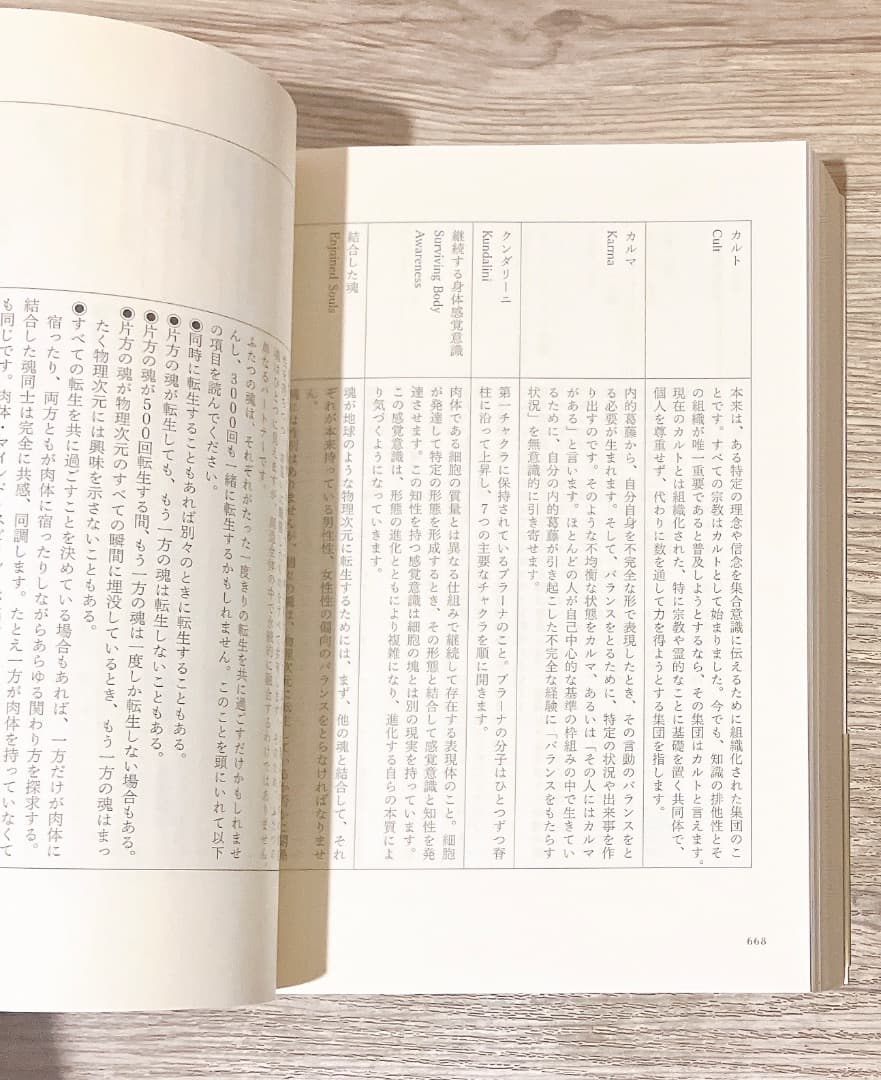 カルト
Cult
本来は、ある特定の理念や信念を集合意識に伝えるために組織化された集団のこ
とです。すべての宗教はカルトとして始まりました。今でも、知識の排他性とそ
の組織が唯一重要であると普及しようとするなら、その集団はカルトと言えます。
現在のカルトとは組織化された、特に宗教や霊的なことに基礎を置く共同体で、
個人を尊重せず、代わりに数を通して力を得ようとする集団を指します。
カルマ
Karma
内的葛藤から、自分自身を不完全な形で表現したとき、その言動のバランスをと
る必要が生まれます。そして、バランスをとるために、特定の状況や出来事を作
り出すのです。そのような不均衡な状態をカルマ、あるいは「その人にはカルマ
がある」と言います。ほとんどの人が自己中心的な基準の枠組みの中で生きてい
るために、自分の内的葛藤が引き起こした不完全な経験に「バランスをもたらす
状況」を無意識的に引き寄せます。
クンダリーニ
Kundalini
第一チャクラに保持されているプラーナのこと。プラーナの分子はひとつずつ脊
柱に沿って上昇し、7つの主要なチャクラを順に開きます。
継続する身体感覚意識
Surviving Body
Awareness
肉体である細胞の質量とは異なる仕組みで継続して存在する表現体のこと。細胞
が発達して特定の形態を形成するとき、その形態と結合して感覚意識と知性を発
達させます。この知性を持つ感覚意識は細胞の塊とは別の現実を持っています。
この感覚意識は、形態の進化とともにより複雑になり、進化する自らの本質によ
り気づくようになっていきます。
結合した魂
Enjoined Souls
魂が地球のような物理次元に転生するためには、まず、他の魂と結合して、それ
ぞれが本来持っている男性性、女性性の偏向のバランスをとらなければなりませ
ん。
668
単なるパートナーです。
ふたつの魂は、それぞれがたった一度きりの転生を共に過ごすだけかもしれませ
んし、3000回も一緒に転生するかもしれません。このことを頭にいれて以下
の項目を読んでください。
◉同時に転生することもあれば別々のときに転生することもある。
◉片方の魂が転生しても、もう一方の魂は転生しないこともある。
◉片方の魂が500回転生する間、もう一方の魂は一度しか転生しない場合もある。
◉片方の魂が物理次元のすべての瞬間に埋没しているとき、もう一方の魂はまっ
たく物理次元には興味を示さないこともある。
◉すべての転生を共に過ごすことを決めている場合もあれば、一方だけが肉体に
宿ったり、両方ともが肉体に宿ったりしながらあらゆる関わり方を探求する。
結合した魂同士は完全に共感、同調します。たとえ一方が肉体を持っていなくて
も同じです。肉体・マインド・